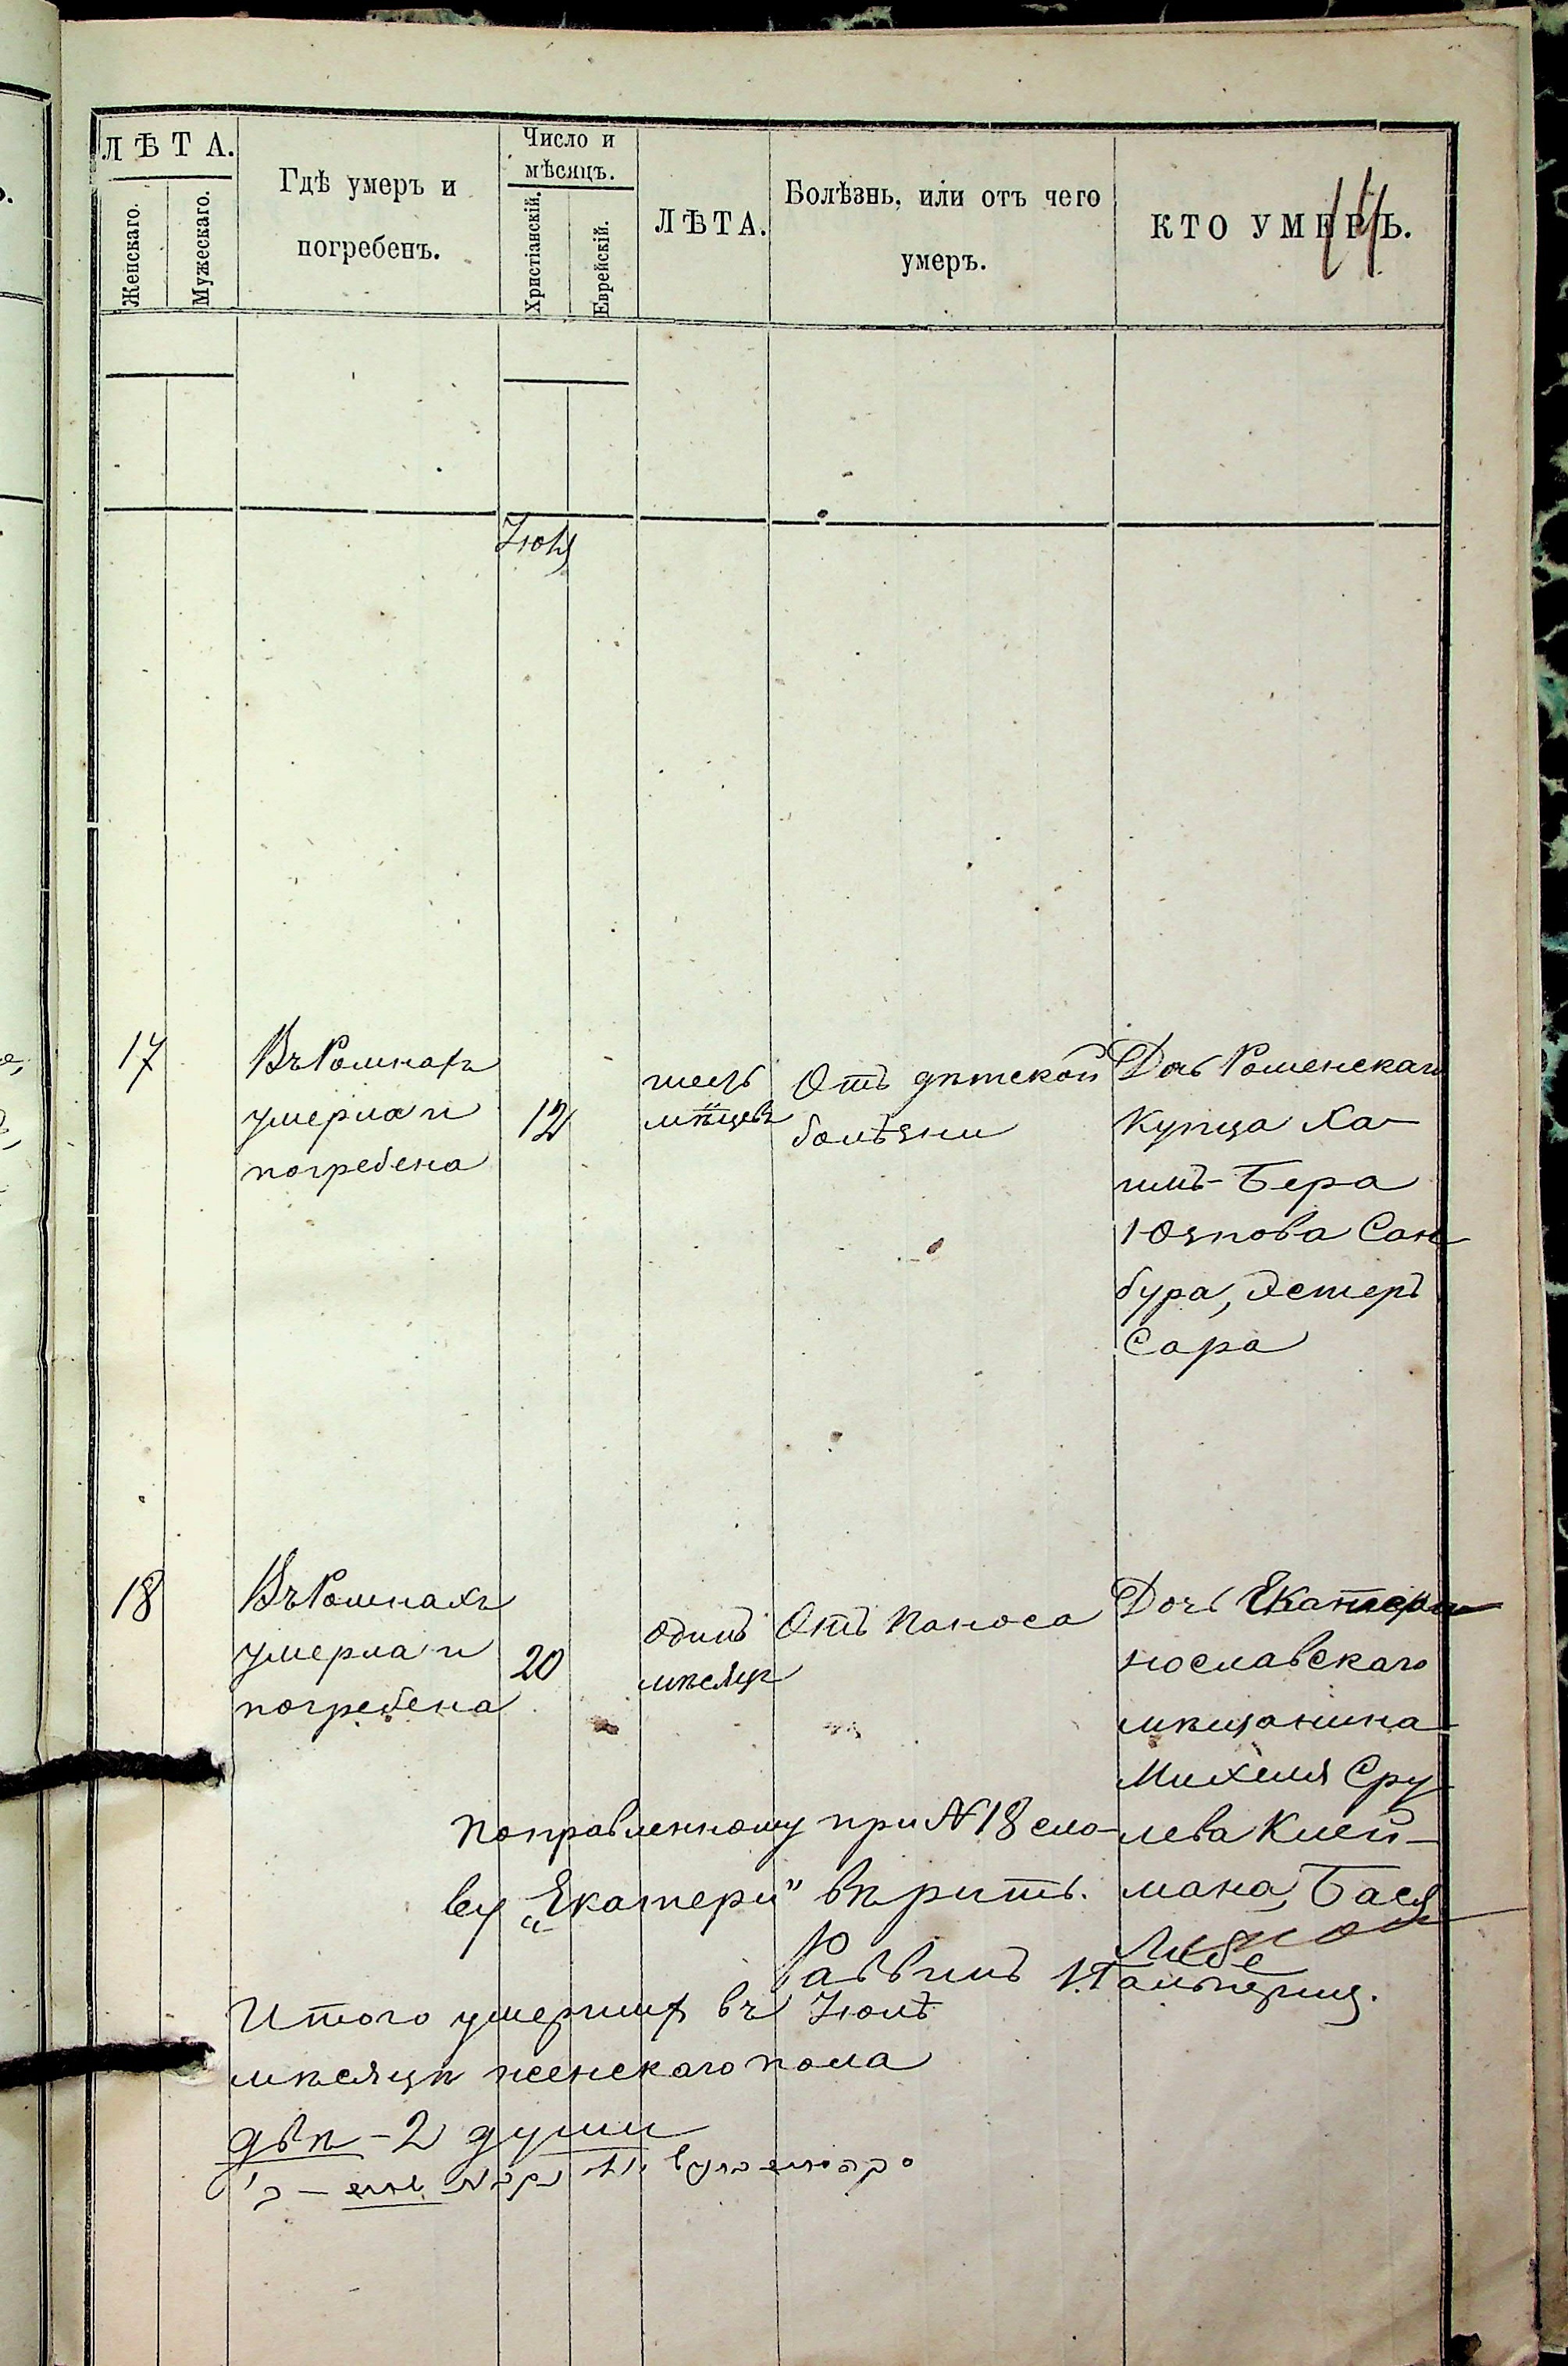 ЛѢТА.
Женскаго.
Мужескаго.
Гдѣ умеръ и
погребенъ.
Число и
мѣсяцъ.
Христіанскій.
Еврейскій.
ЛѢТА.
Болѣзнь, или отъ чего
умеръ.
КТО УМЕРЪ.
14
17
Въ Ромнахъ
умерла и
погребена
12
шесть
мѣсцевъ
Отъ дѣтской
болѣзни
Дочь Роменскаго
купца Ха-
имъ-Бера
Юзпова Сан
бура, Эстеръ
Сара
18
Въ Ромнахъ
умерла и
погребена
20
одинъ
мѣсяцъ
Отъ поноса
Дочь Екатери
нославскаго
мѣщанина
Михеля Сру
лева Клей-
мана, Бася
Либе
Поправленному при № 18 сло-
ву „Екатери" вѣрить.
Раввинъ
Итого умершихъ въ Іюлѣ
мѣсяцѣ женскаго пола
двѣ - 2 души